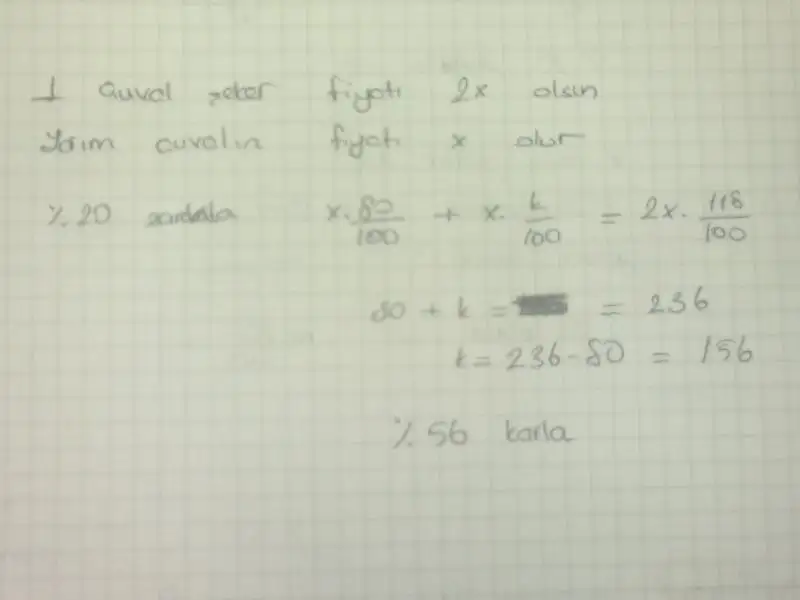 1 çuval şeker fiyatı 2x olsun
Yarım çuvalın fiyatı x olur
%20 zararla x.80/100 + x.k/100 = 2x.118/100
80 + k = = 236
k = 236-80 = 156
%56 karla